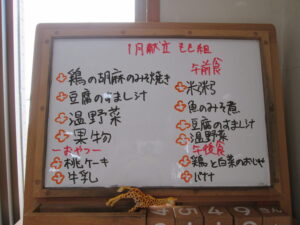 1月献立 もも組
鶏の胡麻のみそ焼き
豆腐のすまし汁
温野菜
果物
ーおやつー
桃ケーキ
牛乳
午前食
米粥
魚のみそ煮
豆腐のすまし汁
温野菜
午後食
鶏と白菜のおじや
バナナ